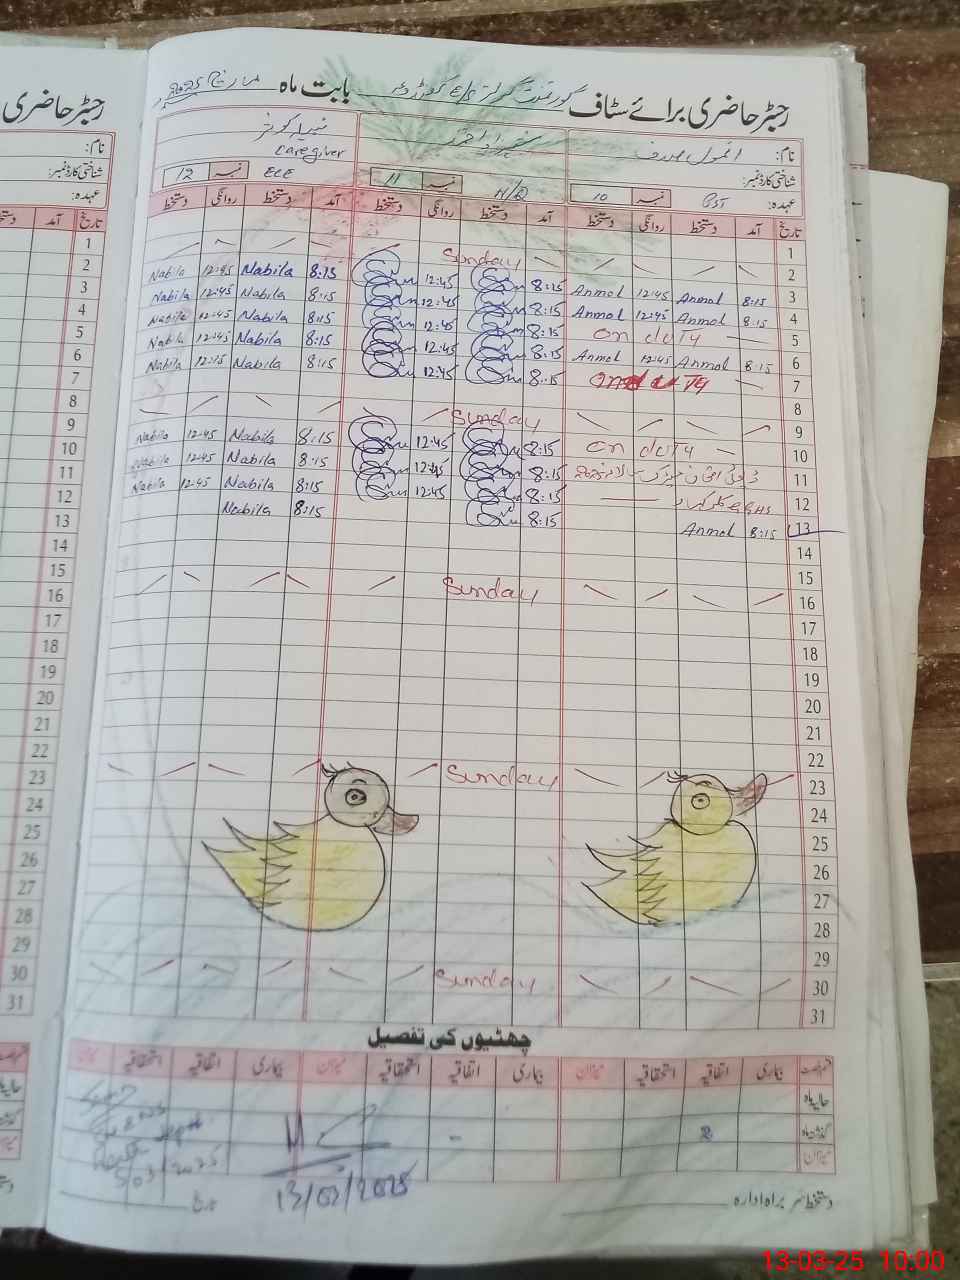 رجسٹر حاضری برائے سٹاف گورنمنٹ گرلز E/S بابت ماہ مارچ 2025
نام: انمول صدف شہزاد احمد نبیلا کوثر
شناختی کارڈ نمبر: Caregiver
عہدہ: نمبر 10 H/Q نمبر 11 ECE نمبر 12
تاریخ آمد دستخط روانگی دستخط آمد دستخط روانگی دستخط آمد دستخط روانگی دستخط
1
2 Sunday
3 8:15 Anmol 12:45 Anmol 8:15 12:45 8:15 Nabila 12:45 Nabila
4 8:15 Anmol 12:45 Anmol 8:15 12:45 8:15 Nabila 12:45 Nabila
5 on duty 8:15 12:45 8:15 Nabila 12:45 Nabila
6 8:15 Anmol 12:45 Anmol 8:15 12:45 8:15 Nabila 12:45 Nabila
7 on duty 8:15 12:45 8:15 Nabila 12:45 Nabila
8
9 Sunday
10 on duty 8:15 12:45 8:15 Nabila 12:45 Nabila
11 8:15 12:45 8:15 Nabila 12:45 Nabila
12 GGHS 8:15 12:45 8:15 Nabila 12:45 Nabila
13 8:15 Anmol 8:15 8:15 Nabila
14
15
16 Sunday
17
18
19
20
21
22
23 Sunday
24
25
26
27
28
29
30 Sunday
31
چھٹیوں کی تفصیل
بیماری اتفاقیہ استحقاقیہ میزان بیماری اتفاقیہ استحقاقیہ میزان بیماری اتفاقیہ استحقاقیہ میزان
حالیہ ماہ
گذشتہ ماہ 2 -
میزان
دستخط سربراہ ادارہ تاریخ
13/03/2025
5/03/2025
13-03-25 10:00